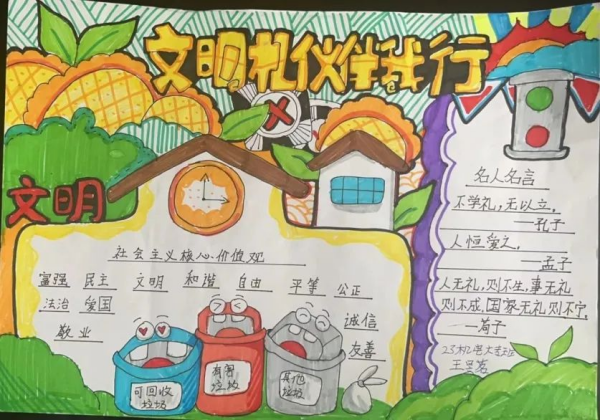 文明礼仪伴我行
文明
社会主义核心价值观
富强 民主 文明 和谐 自由 平等 公正
法治 爱国 诚信
敬业 友善
可回收
垃圾
有害
垃圾
其他
垃圾
名人名言
不学礼,无以立,
—孔子
人恒爱之,
—孟子
人无礼,则不生,事无礼
则不成,国家无礼,则不宁
—荀子